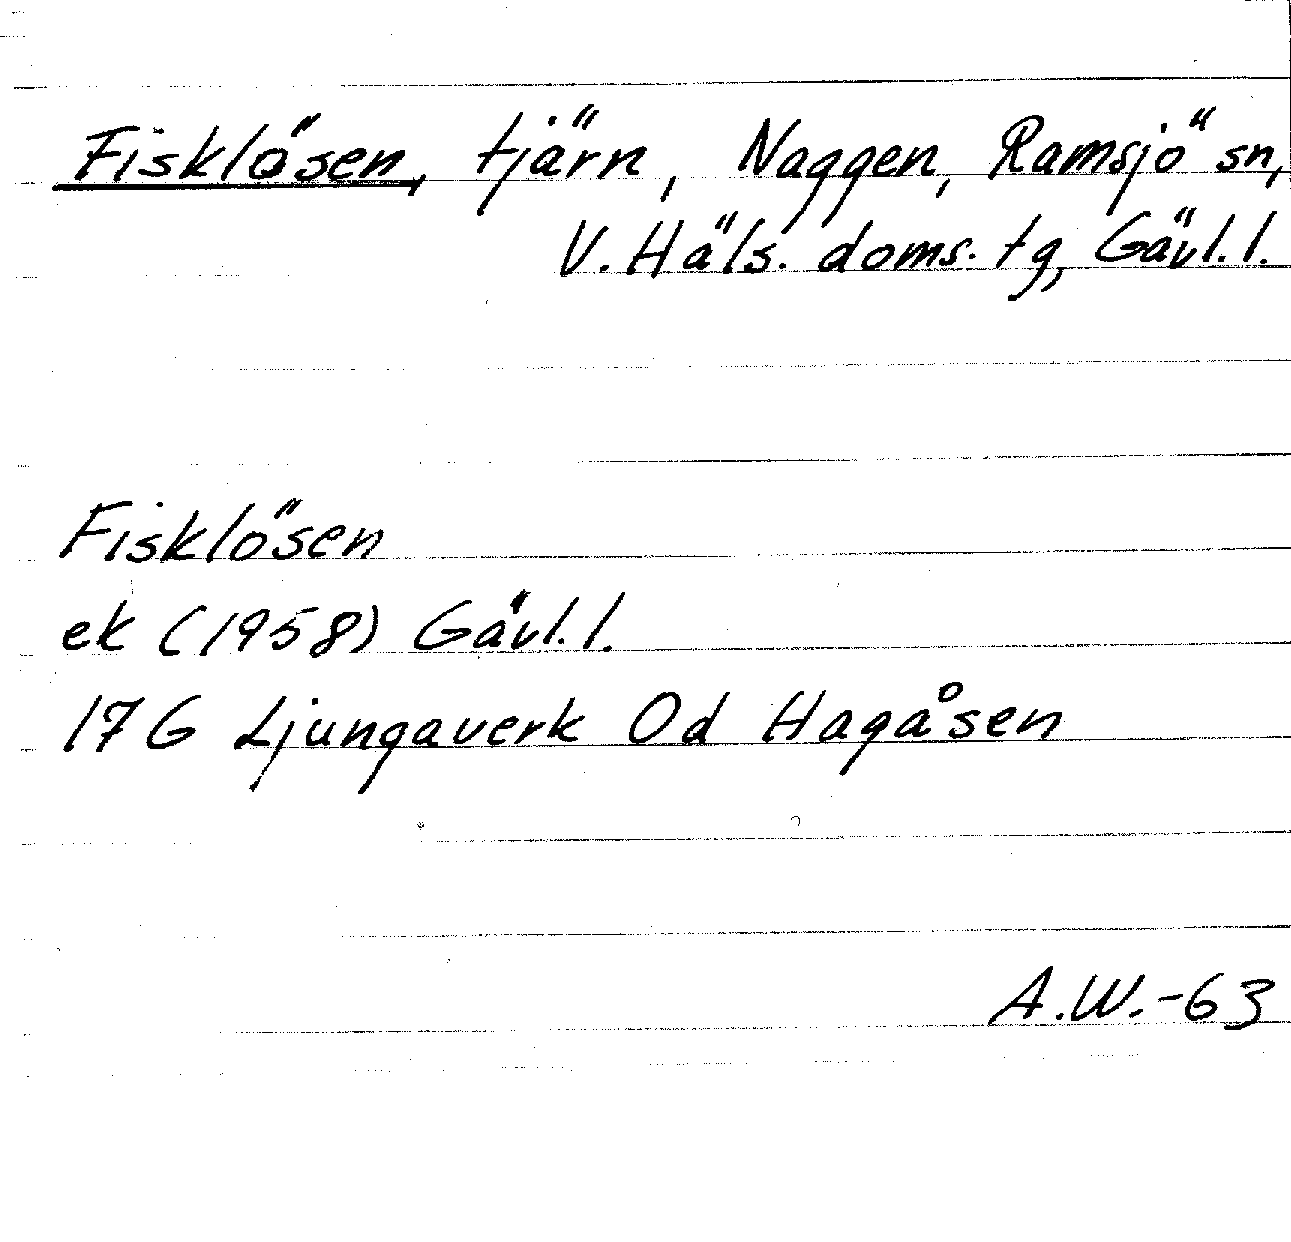 Fisklösen, tjärn, Naggen, Ramsjö sn,
V. Häls. doms. tg, Gävl. l.
Fisklösen
ek (1958) Gävl. l.
17 G Ljungaverk Od Hagåsen
A.W.-63